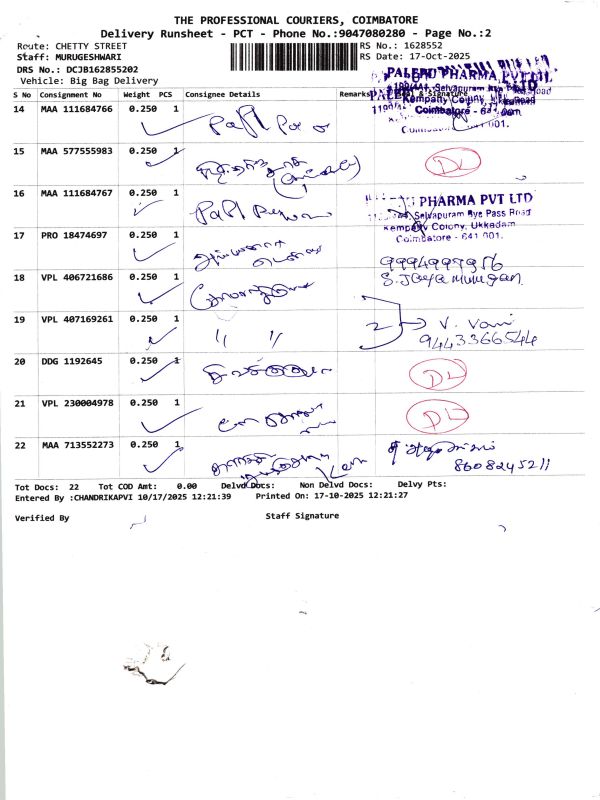 THE PROFESSIONAL COURIERS, COIMBATORE
Delivery Runsheet - PCT - Phone No.:9047080280 - Page No.:2
Route: CHETTY STREET
RS No.: 1628552
Staff: MURUGESHWARI
RS Date: 17-Oct-2025
DRS No.: DCJB162855202
Vehicle: Big Bag Delivery
PALEPU PHARMA PVT LTD
Kempatty Colony, Ukkadam
Coimbatore - 641 001.
S No Consignment No Weight PCS Consignee Details Remarks & Signature
14 MAA 111684766 0.250 1
15 MAA 577555983 0.250 1 DL
16 MAA 111684767 0.250 1
PHARMA PVT LTD
Selvapuram Bye Pass Road
Kempatty Colony, Ukkadam
Coimbatore - 641 001.
17 PRO 18474697 0.250 1
9994999956
S. Jeyamurugan
18 VPL 406721686 0.250 1
19 VPL 407169261 0.250 1 " " 2 → V. Vani
9443366544
20 DDG 1192645 0.250 1 DL
21 VPL 230004978 0.250 1 DL
22 MAA 713552273 0.250 1
8608245211
Tot Docs: 22 Tot COD Amt: 0.00 Delvd Docs: Non Delvd Docs: Delvy Pts:
Entered By :CHANDRIKAPVI 10/17/2025 12:21:39 Printed On: 17-10-2025 12:21:27
Verified By Staff Signature